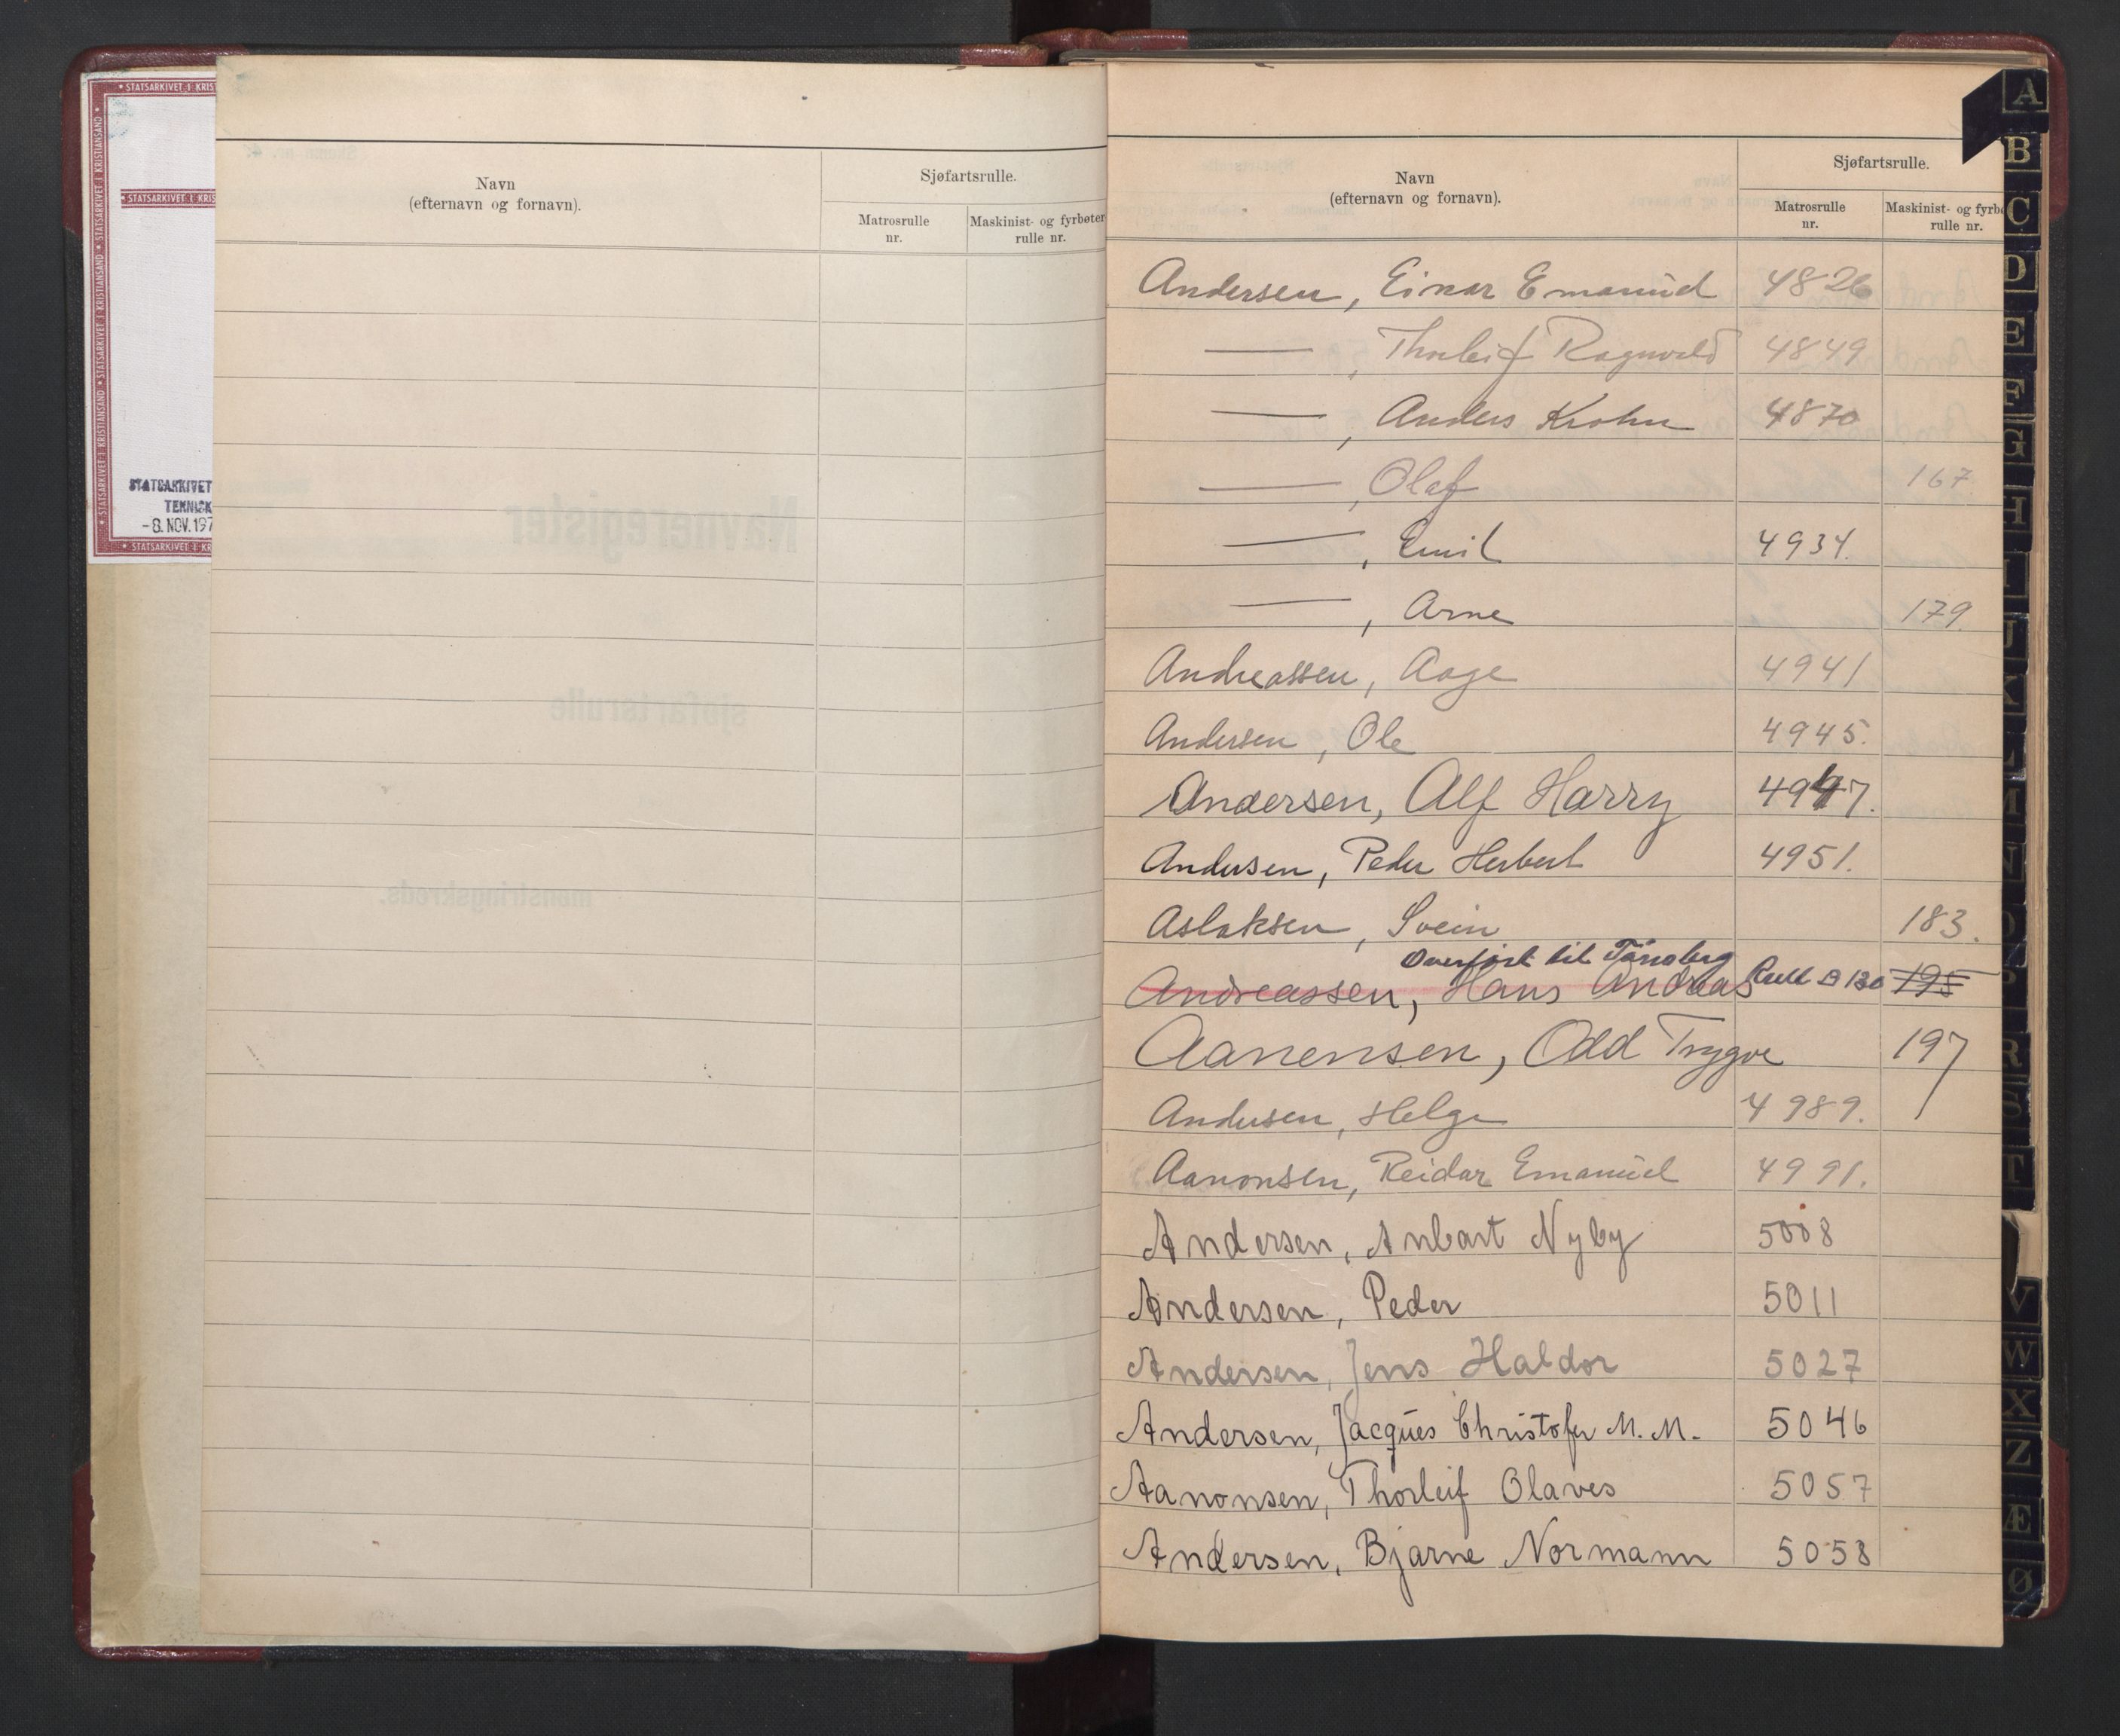 STATSARKIVET I KRIS
STATSARKIVET I KRISTIANSAND
STATSARKIVET I KRIS
STATSARKIVET
TEKNISK
-8. NOV. 197
STATSARKIVET I KR
Navn
(efternavn og fornavn).
Sjøfartsrulle.
Matrosrulle
nr.
Maskinist- og fyrbøter
rulle nr.
Navn
(efternavn og fornavn).
Sjøfartsrulle.
Matrosrulle
nr.
Maskinist- og fyrbø
rulle nr.
Andersen, Einar Emanuel 4826
—, Thorleif Ragnvald 4849
—, Anders Krohn 4870
—, Olaf 167
—, Emil 4934.
—, Arne 179.
Andreassen, Aage 4941
Andersen, Ole 4945.
Andersen, Alf Harry 4947.
Andersen, Peder Herbert 4951.
Aslaksen, Svein 183.
Overført til Tønsberg
Andreassen, Hans Andreas Rull B 130 195
Aanensen, Odd Trygve 197
Andersen, Helge 4989.
Aanonsen, Reidar Emanuel 4991.
Andersen, Anbart Nyby 5008
Andersen, Peder 5011
Andersen, Jens Haldor 5027
Andersen, Jacques Christofer M. M. 5046
Aanonsen, Thorleif Olaves 5057
Andersen, Bjarne Normann 5058
A
B
C
D
E
F
G
H
I
J
K
L
M
N
O
P
R
S
T
V
W
X
Z
Æ
Ø